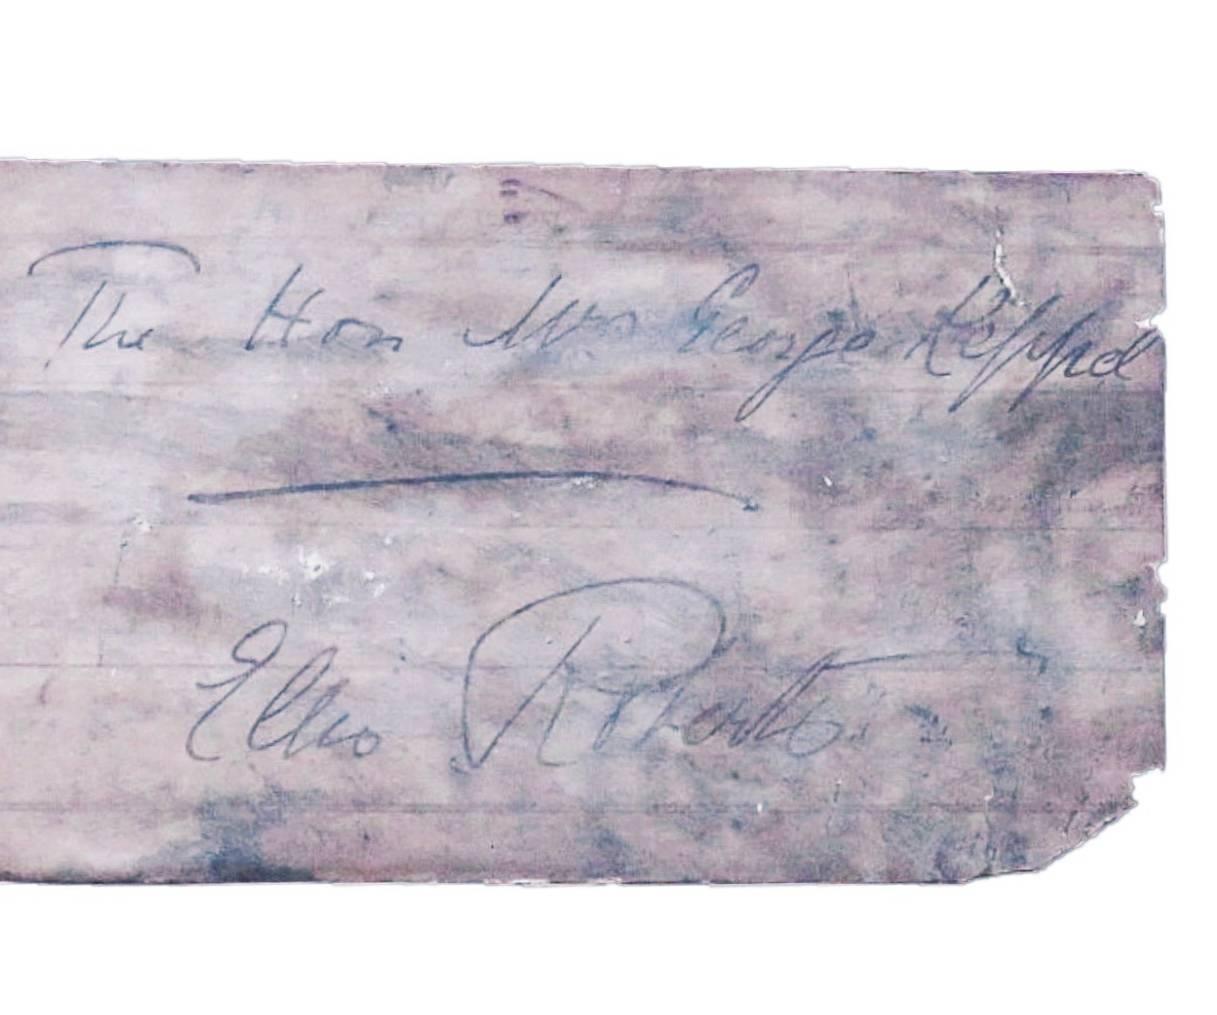 The Hon Mrs George Keppel
Ellis Roberts